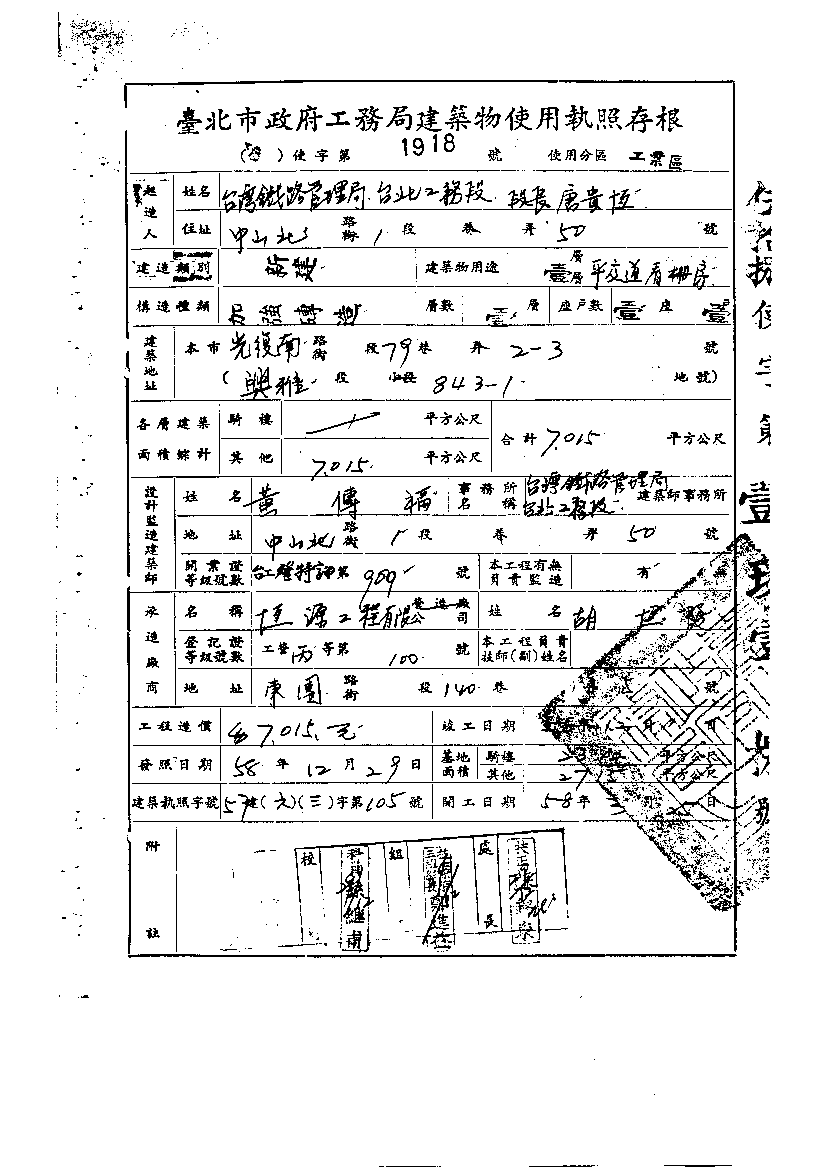 臺北市政府工務局建築物使用執照存根
( )使字第 1918 號 使用分區 工業區
起造人 姓名 台灣鐵路管理局台北工務段 段長唐貴恆
住址 中山北 路街 1 段 巷 弄 50 號
建造類別 新建 建築物用途 壹層 平交道看柵房
構造種類 加強磚造 層數 壹 層 座戶數 壹 座 壹
建築地址 本市 光復南 路街 段 79 巷 弄 2-3 號
( 興雅 段 小段 843-1 地號)
各層建築面積綜計 騎樓 平方公尺 合計 7.015 平方公尺
其他 7.015 平方公尺
設計監造建築師 姓名 黃傳福 事務所名稱 台灣鐵路管理局台北工務段 建築師事務所
地址 中山北 路街 1 段 巷 弄 50 號
開業證等級號數 台工登特 第 909 號 本工程有無負責監造 有
承造廠商 名稱 恆源工程有限公司 營造廠 姓名 胡
登記證等級號數 工營 丙 等第 100 號 本工程負責技師(副)姓名
地址 東園 路街 段 140 巷 號
工程造價 7,015元 竣工日期 12 月
發照日期 58 年 12 月 29 日 基地面積 騎樓 平方公尺
其他 平方公尺
建築執照字號 57建(六)(三)字第105號 開工日期 58 年 月 日
附註
校 科 組 處長
使字第壹